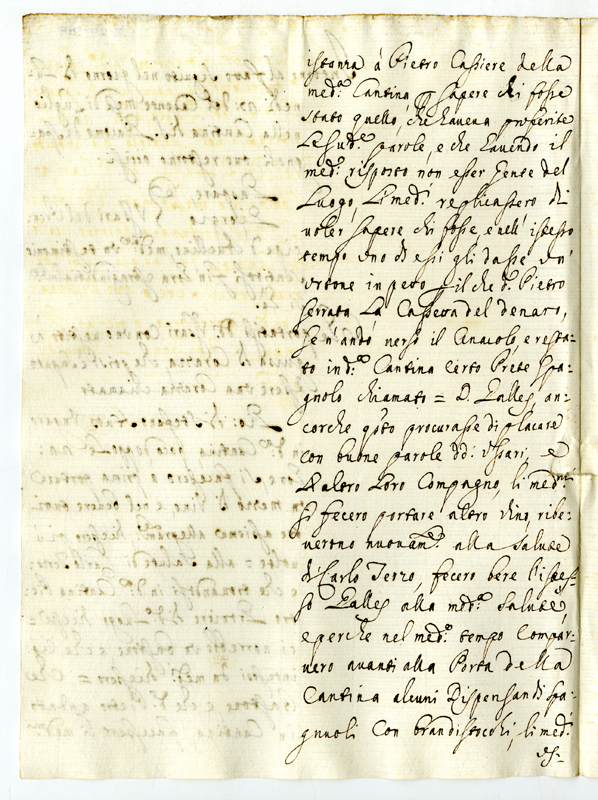 istanza à Pietro Cassiere della
med.ª Cantina, p sapere chi fosse
stato quello, che haveva proferite
le sud.e parole, e che havendo il
med.º risposto non esser gente del
Luogo, li med.i replicassero di
voler sapere chi fosse, e nell' istesso
tempo uno di essi gli dasse un'
urtone in petto p il che d.º Pietro
serrata la Cassetta del denaro,
se n'andò verso il Cenacolo, e resta=
to in d.ª Cantina certo Prete Spa=
gnolo chiamato = D. Valles, an=
corche qsto procurasse di placare
con buone parole dd.i Ussari, e
l'altro loro Compagno, li med.mi
si fecero portare altro vino, ribe=
verono nuovam.te alla salute
di Carlo Terzo, fecero bere l'istes=
so Valles alla med.ª salute,
e perche nel med.º tempo compar=
vero avanti alla Porta della
Cantina alcuni Dispensandi Spa=
gnuoli con brandistocchi, li med.i
Us=